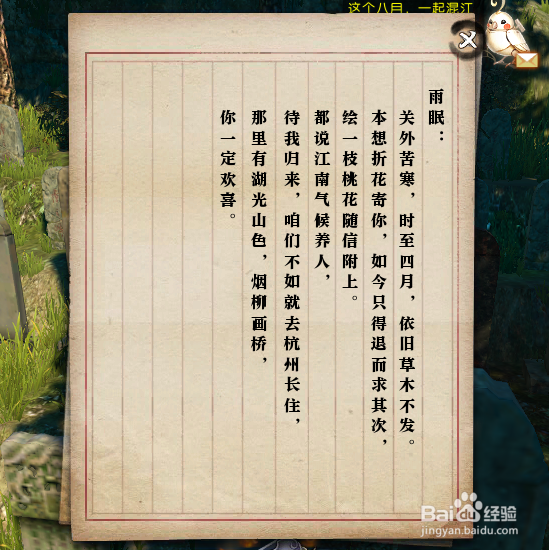 这个八月，一起混江
雨眠：
关外苦寒，时至四月，依旧草木不发。
本想折花寄你，如今只得退而求其次，
绘一枝桃花随信附上。
都说江南气候养人，
待我归来，咱们不如就去杭州长住，
那里有湖光山色，烟柳画桥，
你一定欢喜。
Baidu经验
jingyan.baidu.com